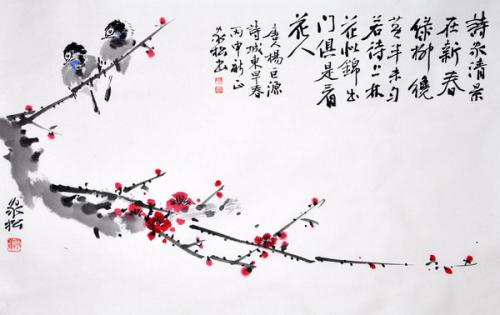 詩家清景
在新春
綠柳纔
黄半未匀
若待上林
花似錦出
門俱是看
花人
唐人楊巨源
詩城東早春
丙申新正
家松
家松